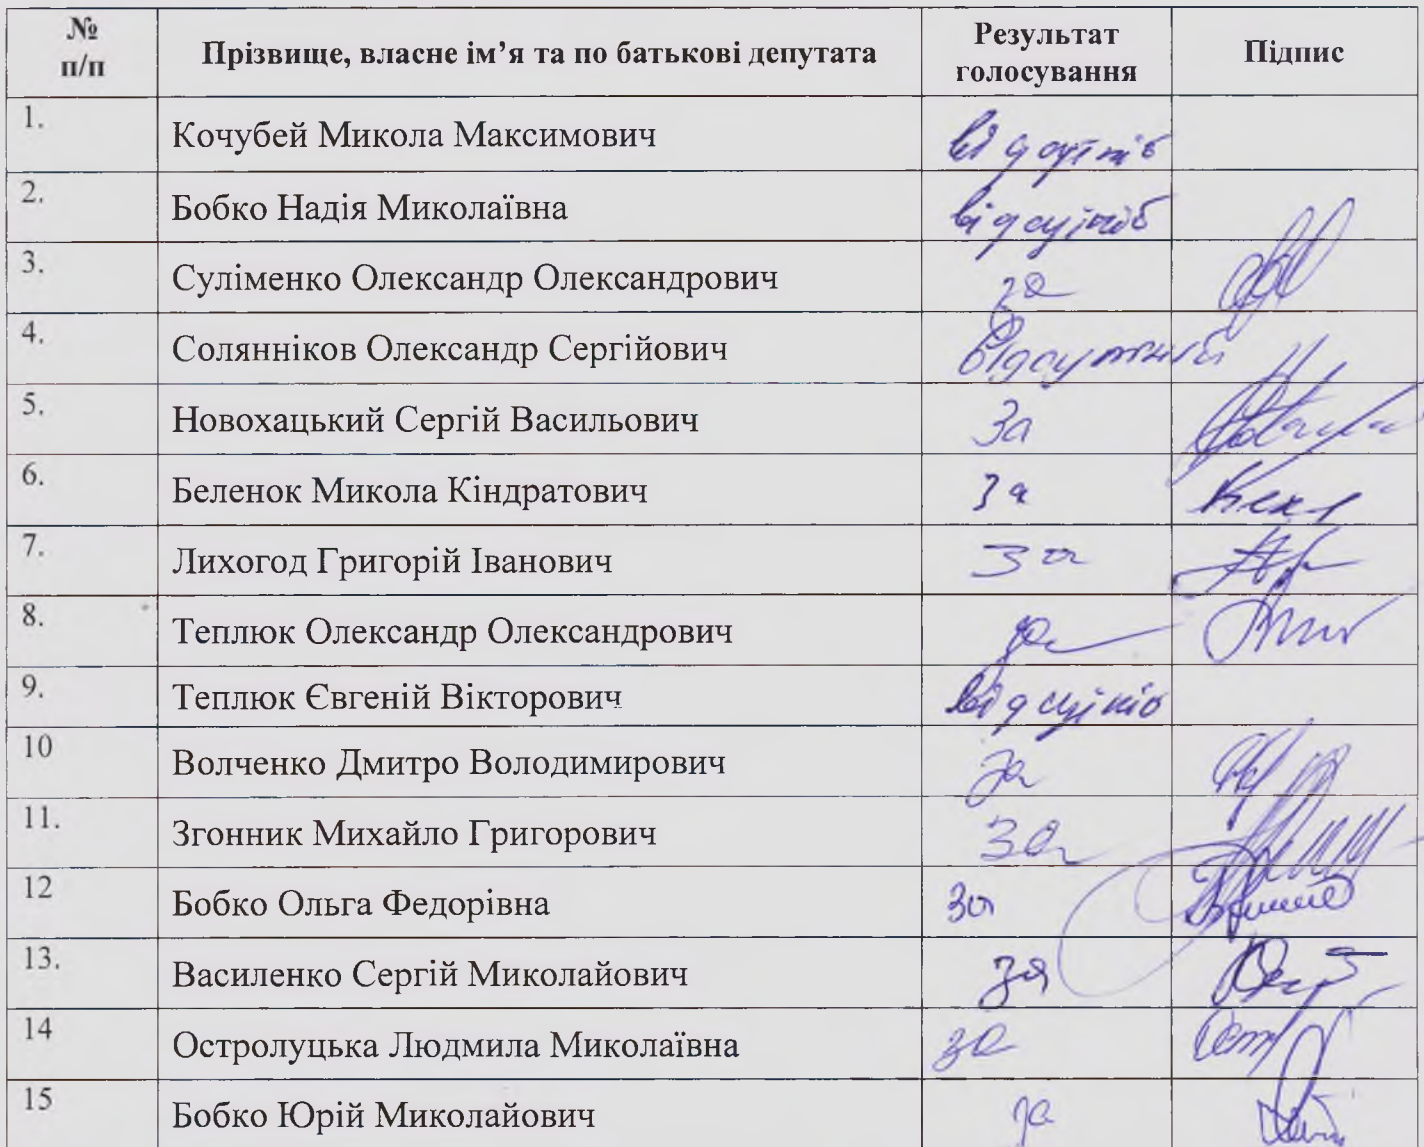 № п/п Прізвище, власне ім’я та по батькові депутата Результат голосування Підпис
1. Кочубей Микола Максимович відсутній
2. Бобко Надія Миколаївна відсутній
3. Суліменко Олександр Олександрович за
4. Солянніков Олександр Сергійович Відсутній
5. Новохацький Сергій Васильович За
6. Беленок Микола Кіндратович За
7. Лихогод Григорій Іванович За
8. Теплюк Олександр Олександрович за
9. Теплюк Євгеній Вікторович відсутній
10 Волченко Дмитро Володимирович За
11. Згонник Михайло Григорович За
12 Бобко Ольга Федорівна За
13. Василенко Сергій Миколайович за
14 Остролуцька Людмила Миколаївна за
15 Бобко Юрій Миколайович за